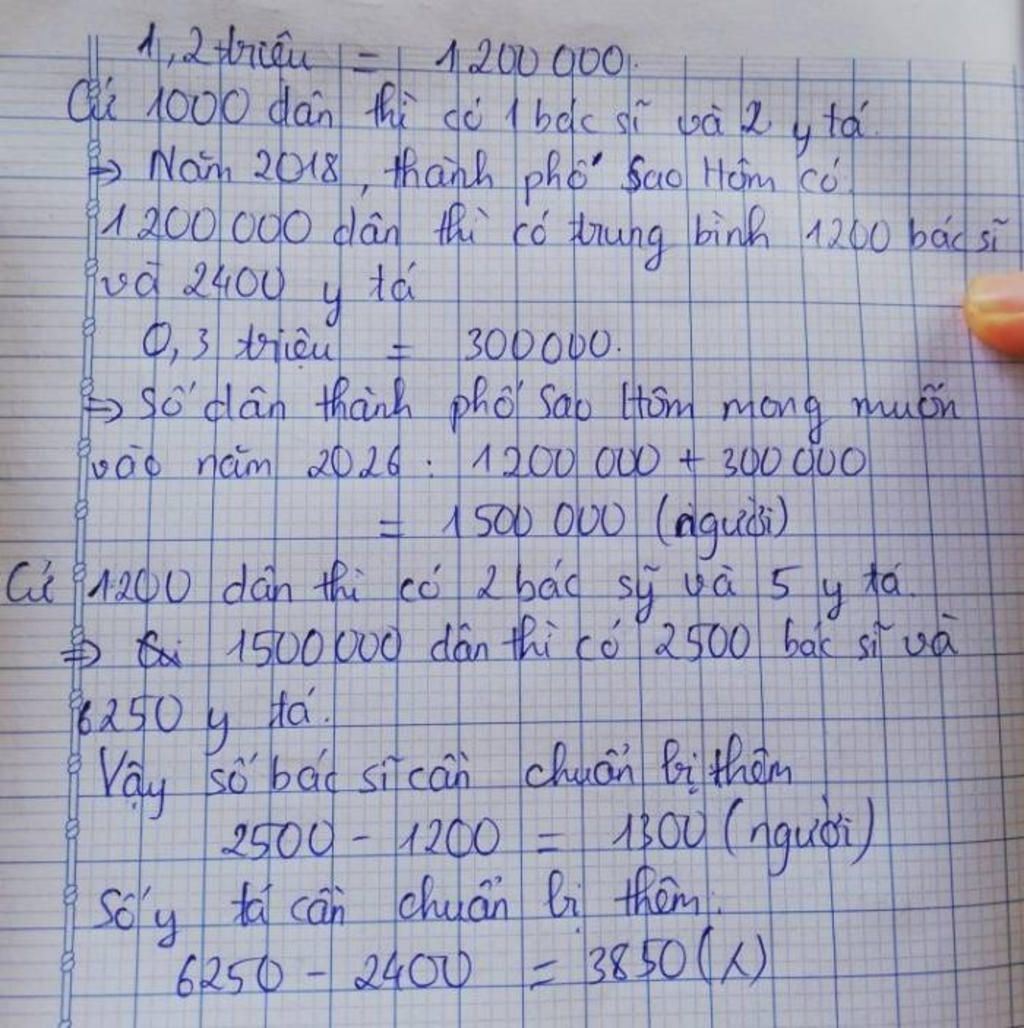 1,2 triệu = 1 200 000.
Cứ 1000 dân thì có 1 bác sĩ và 2 y tá.
=> Năm 2018, thành phố Sao Hôm có
1 200 000 dân thì có trung bình 1200 bác sĩ
và 2400 y tá
0,3 triệu = 300 000.
=> Số dân thành phố Sao Hôm mong muốn
vào năm 2026 : 1 200 000 + 300 000
= 1 500 000 (người)
Cứ 1200 dân thì có 2 bác sỹ và 5 y tá.
=> 1500 000 dân thì có 2500 bác sĩ và
6250 y tá.
Vậy số bác sĩ cần chuẩn bị thêm
2500 - 1200 = 1300 (người)
Số y tá cần chuẩn bị thêm.
6250 - 2400 = 3850 ( )